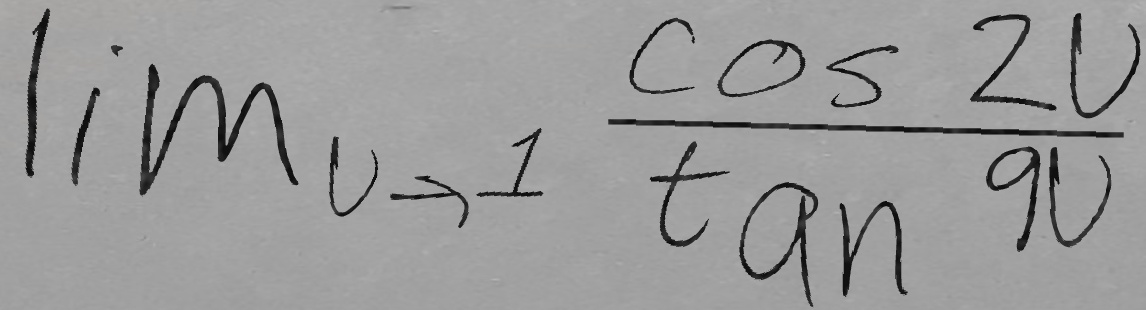 \lim_{v \to 1} \frac{\cos 2v}{\tan 9v}